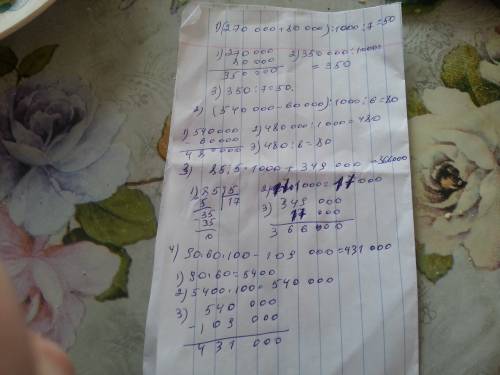 1) (270 000 + 80 000) : 1000 : 7 = 50
1) 270 000 2) 350 000 : 1000
80 000 = 350
350 000
3) 350 : 7 = 50.
2) (540 000 - 60000) : 1000 : 6 = 80
1) 540 000 2) 480 000 : 1000 = 480
- 60000
480000 3) 480 : 6 = 80
3) 85 : 5 · 1000 + 349 000 = 366000
1) 85 5 2) 17 · 1000 = 17 000
5 17 3) 349 000
35 17 000
35 366 000
0
4) 90 · 60 · 100 - 109 000 = 431 000
1) 90 · 60 = 5400
2) 5400 · 100 = 540 000
3) 540 000
- 109 000
431 000